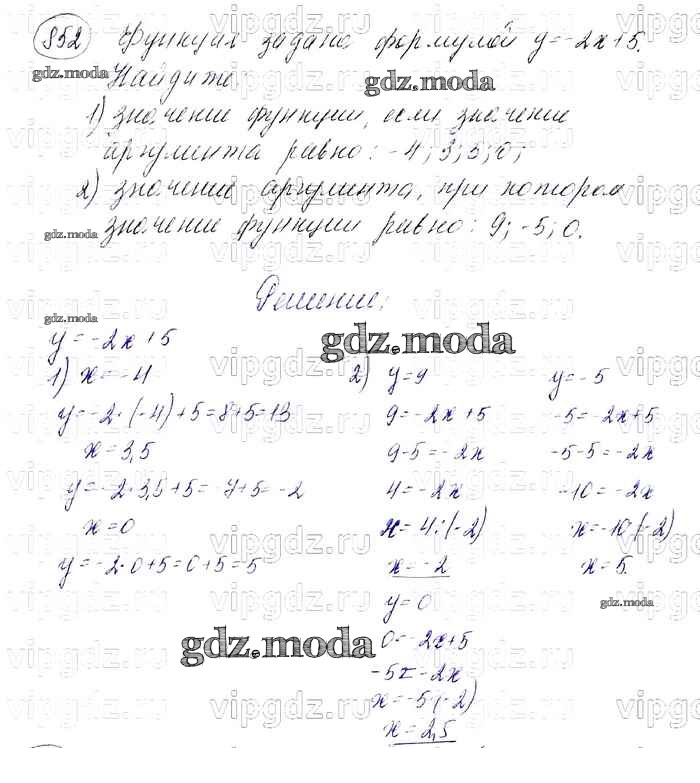 852 Функция задана формулой y=-2x+5.
Найдите
1) значение функции, если значение
аргумента равно: -4; 3,5; 0;
2) значение аргумента, при котором
значение функции равно: 9; -5; 0.
Решение:
y=-2x+5
1) x=-4
y=-2·(-4)+5=8+5=13
x=3,5
y=-2·3,5+5=-7+5=-2
x=0
y=-2·0+5=0+5=5
2) y=9
9=-2x+5
9-5=-2x
4=-2x
x=4:(-2)
x=-2
y=-5
-5=-2x+5
-5-5=-2x
-10=-2x
x=-10:(-2)
x=5.
y=0
0=-2x+5
-5=-2x
x=-5:(-2)
x=2,5
gdz.moda
gdz.moda
gdz.moda
gdz.moda
gdz.moda
gdz.moda
gdz.moda
vipgdz.ru